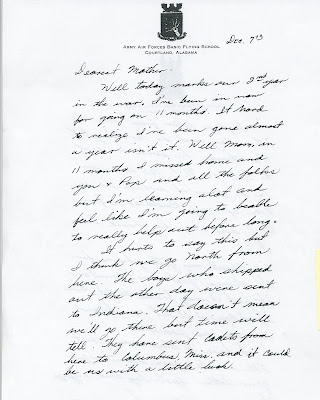 ARMY AIR FORCES BASIC FLYING SCHOOL
COURTLAND, ALABAMA
Dec. 7th
Dearest Mother:
Well today marks our 2nd year
in the war, I've been in now
for going on 11 months. It hard
to realize I've been gone almost
a year isn't it. Well Mom, in
11 months I missed home and
you & Pop and all the folks
but I'm learning alot and
feel like I'm going to be able
to really help out before long.
It hurts to say this but
I think we go North from
here. The boys who shipped
out the other day were sent
to Indiana. That doesn't mean
we'll go there but time will
tell. They have sent cadets from
here to Columbus, Miss. and it could
be us with a little luck.